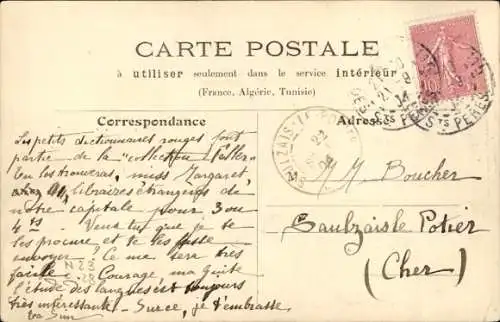 CARTE POSTALE
à utiliser seulement dans le service intérieur
(France, Algérie, Tunisie)
Correspondance
Adresse
Les petits dictionnaires rouges font
partie de la "collection
En les trouveras, miss Margaret,
libraires étrangers de
notre capitale pour 3 ou
4 fs - Veux tu que je te
les procure et te les fasse
envoyer? Ce me sera très
facile. Courage, ma
l'étude des langues est toujours
très intéressante! - Sur ce, je t'embrasse.
M M. Boucher
Saulzais le Potier
(Cher)
22
10
STS PERES